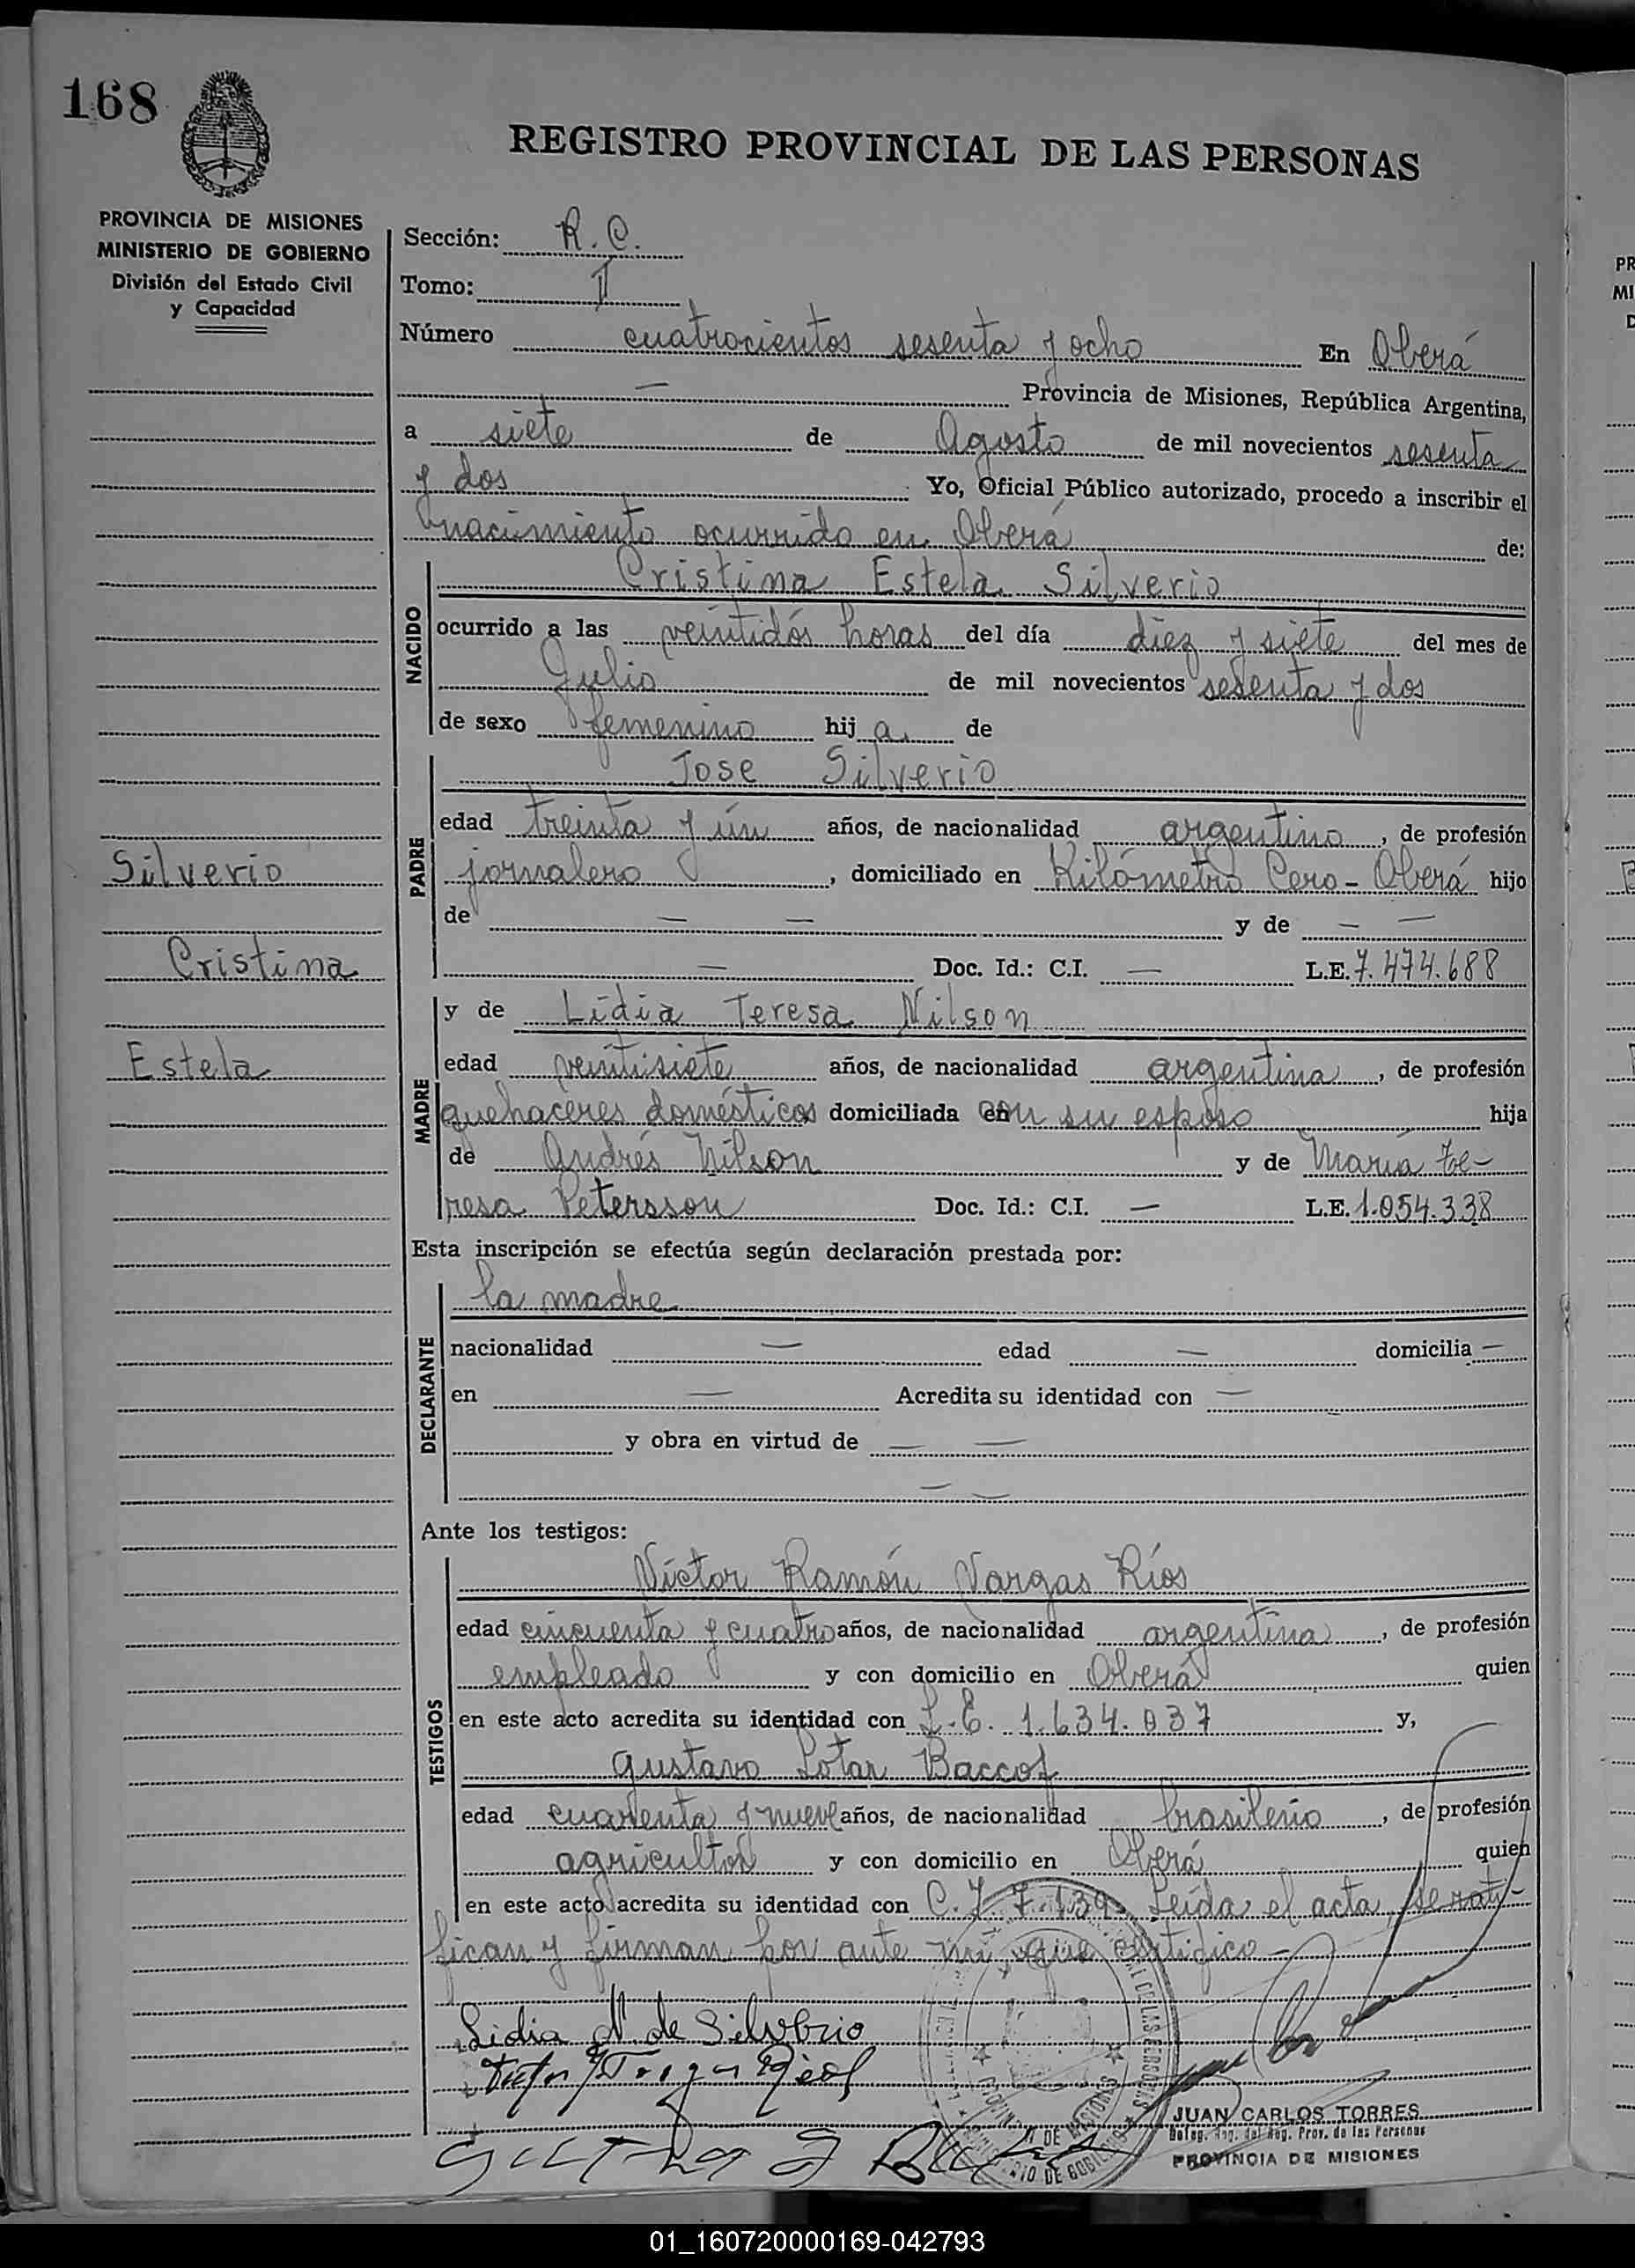 168
REGISTRO PROVINCIAL DE LAS PERSONAS
PROVINCIA DE MISIONES
MINISTERIO DE GOBIERNO
División del Estado Civil
y Capacidad
Sección: R. C.
Tomo: II
Número cuatrocientos sesenta y ocho En Oberá
— Provincia de Misiones, República Argentina,
a siete de Agosto de mil novecientos sesenta
y dos Yo, Oficial Público autorizado, procedo a inscribir el
nacimiento ocurrido en Oberá de:
NACIDO
Cristina Estela Silverio
ocurrido a las veintidós horas del día diez y siete del mes de
Julio de mil novecientos sesenta y dos
de sexo femenino hij a de
PADRE
Jose Silverio
edad treinta y ún años, de nacionalidad argentino, de profesión
jornalero, domiciliado en Kilómetro Cero - Oberá hijo
de — — y de — —
— Doc. Id.: C.I. — L.E. 7.474.688
Silverio
Cristina
Estela
MADRE
y de Lidia Teresa Nilson
edad veintisiete años, de nacionalidad argentina, de profesión
quehaceres domésticos domiciliada en con su esposo hija
de Andrés Nilson y de María Te-
resa Petersson Doc. Id.: C.I. — L.E. 1.054.338
Esta inscripción se efectúa según declaración prestada por:
DECLARANTE
la madre
nacionalidad — edad — domicilia —
en — Acredita su identidad con —
y obra en virtud de — —
— —
Ante los testigos:
TESTIGOS
Víctor Ramón Vargas Ríos
edad cincuenta y cuatro años, de nacionalidad argentina, de profesión
empleado y con domicilio en Oberá quien
en este acto acredita su identidad con L.E. 1.634.037 y,
Gustavo Lotar Baccof
edad cuarenta y nueve años, de nacionalidad brasileño, de profesión
agricultor y con domicilio en Oberá quien
en este acto acredita su identidad con C.I. 7.139. Leída el acta, se rati-
fican y firman por ante mí, que certifico -
Lidia N. de Silverio
JUAN CARLOS TORRES
Deleg. Reg. del Reg. Prov. de las Personas
PROVINCIA DE MISIONES
01_160720000169-042793